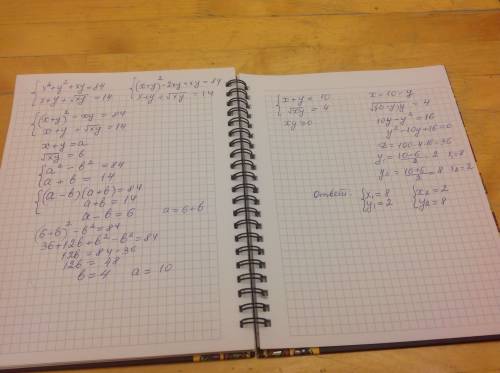 {x²+y²+xy=84
{x+y+√xy=14
{(x+y)²-2xy+xy=84
{x+y+√xy=14
{(x+y)²-xy=84
{x+y+√xy=14
x+y=a
√xy=b
{a²-b²=84
{a+b=14
{(a-b)(a+b)=84
{a+b=14
a-b=6
a=6+b
(6+b)²-b²=84
36+12b+b²-b²=84
12b=84-36
12b=48
b=4 a=10
{x+y=10
{√xy=4
x=10-y
√(10-y)y=4
10y-y²=16
y²-10y+16=0
y₁=(10-6)/2=2 x=8
y₂=(10+6)/2=8 x₂=2
Ответ: {x₁=8 {x₂=2
{y₁=2 {y₂=8